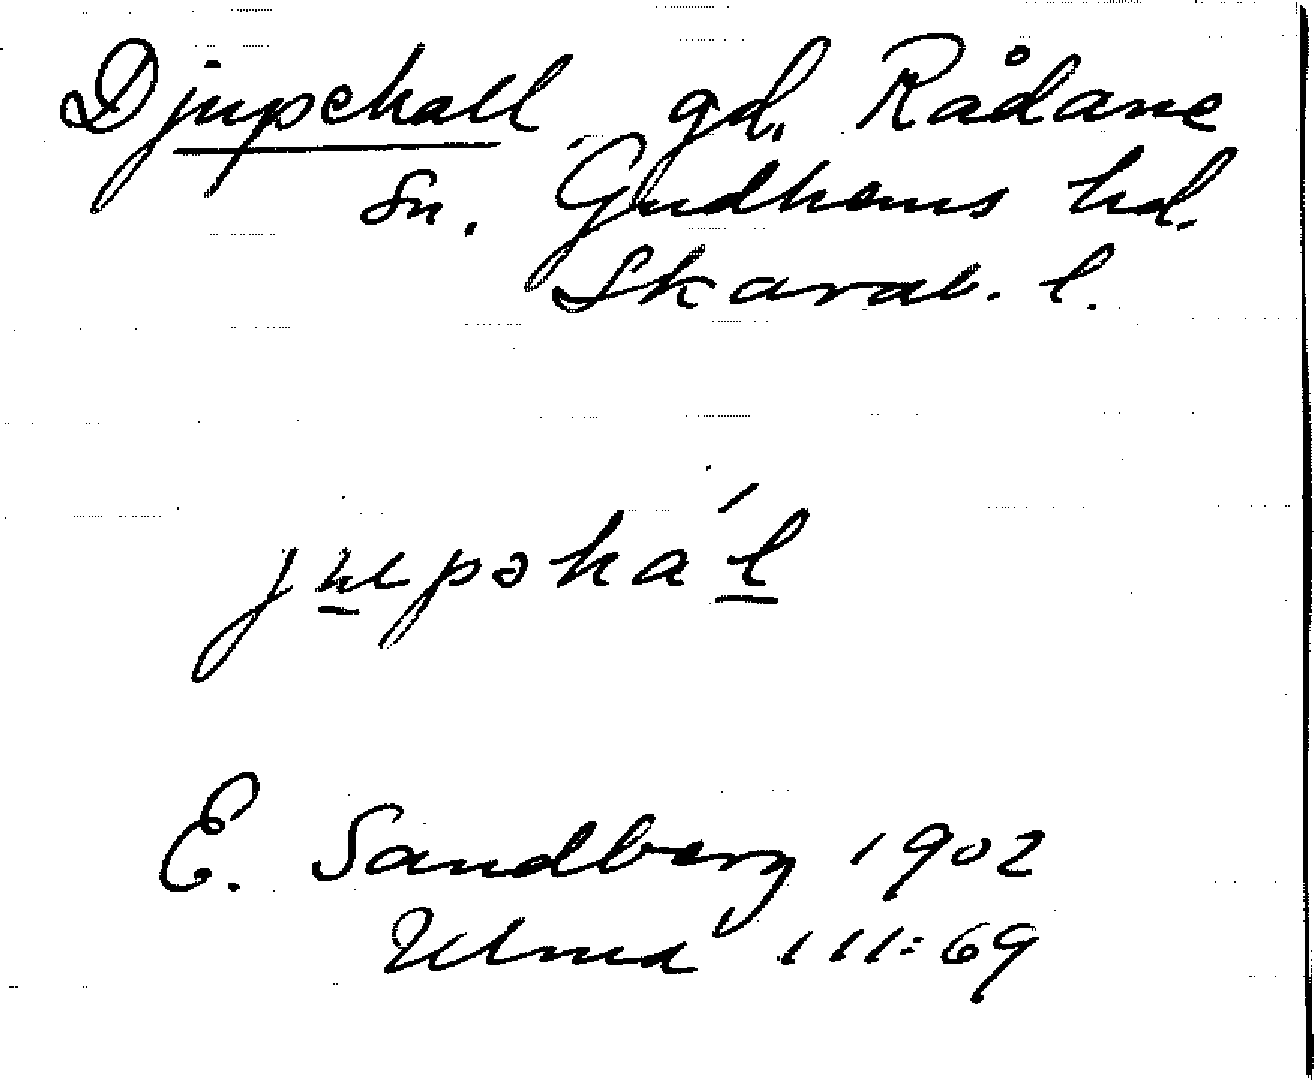 Djupehall gd, Rådane
sn. Gudhems hd.
Skarab. l.
jupəhal´
E. Sandberg 1902
Ulma 111:69